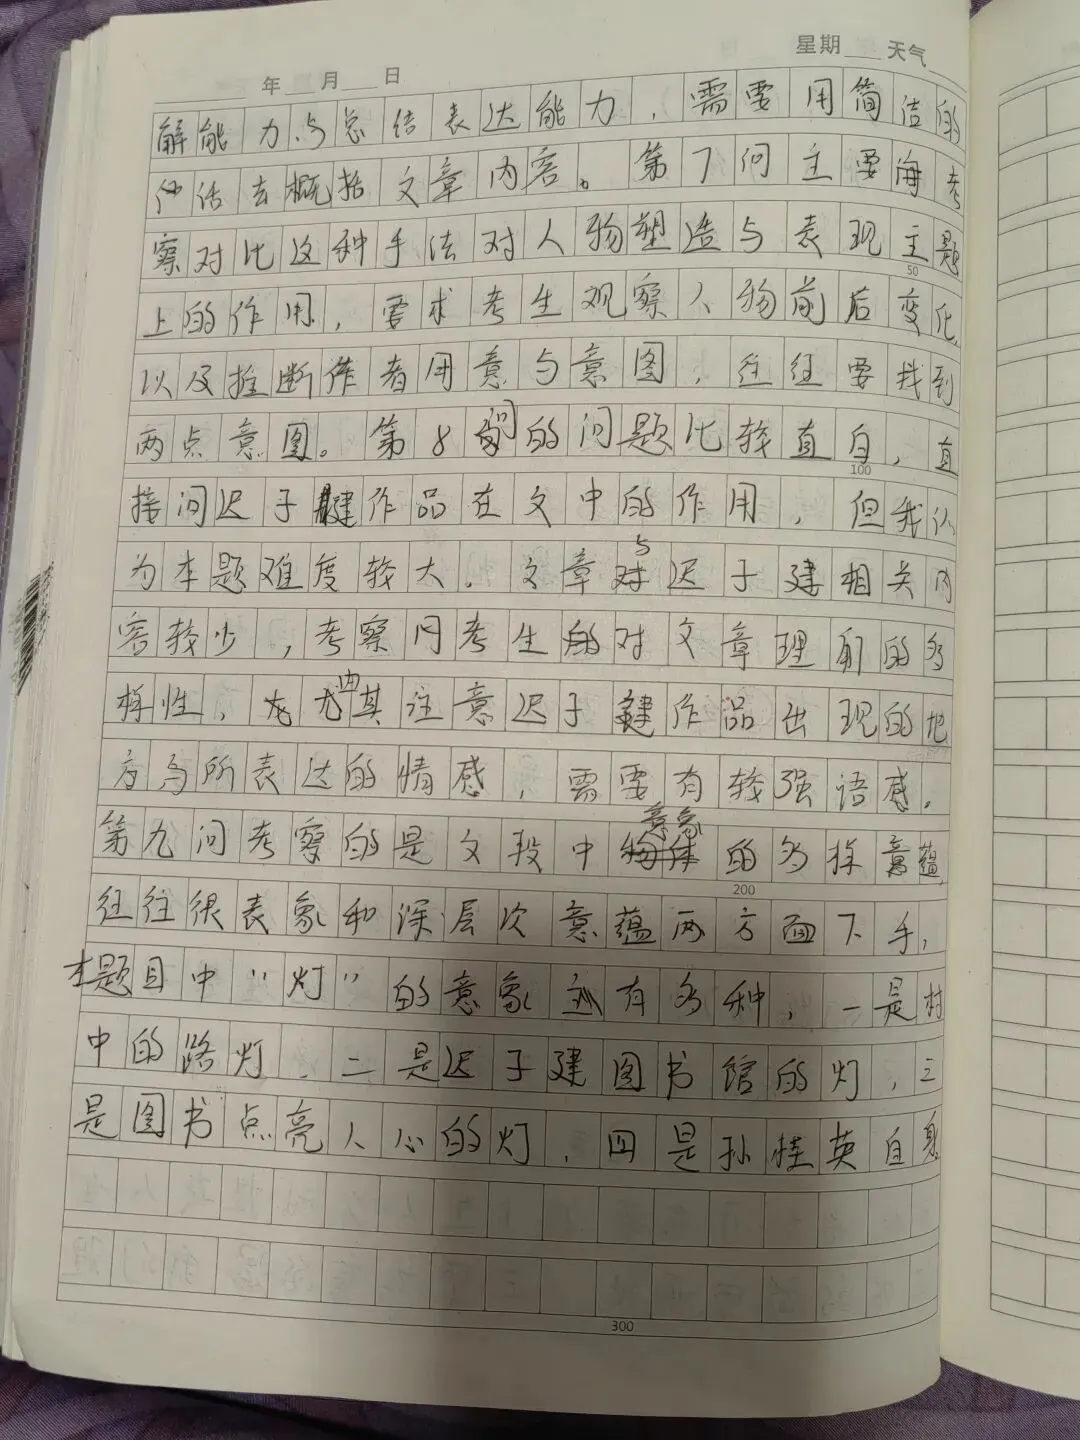 星期 天气
年 月 日
解能力与总结表达能力，需要用简洁的
话去概括文章内容。第7问主要考
察对比这种手法对人物塑造与表现主题
50
上的作用，要求考生观察人物前后变化，
以及推断作者用意与意图，往往要找到
两点意图。第8问的问题比较直白，直
100
接问迟子建作品在文中的作用，但我认
为本题难度较大，文章与迟子建相关内
容较少，考察问考生对文章理解的多
样性，尤其注意迟子建作品出现的地
方与所表达的情感，需要有较强语感。
第九问考察的是文段中意象的多样意蕴，
200
往往很表象和深层次意蕴两方面下手，
本题目中“灯”的意象有多种，一是村
中的路灯，二是迟子建图书馆的灯，三
是图书点亮人心的灯，四是孙桂英自身
300